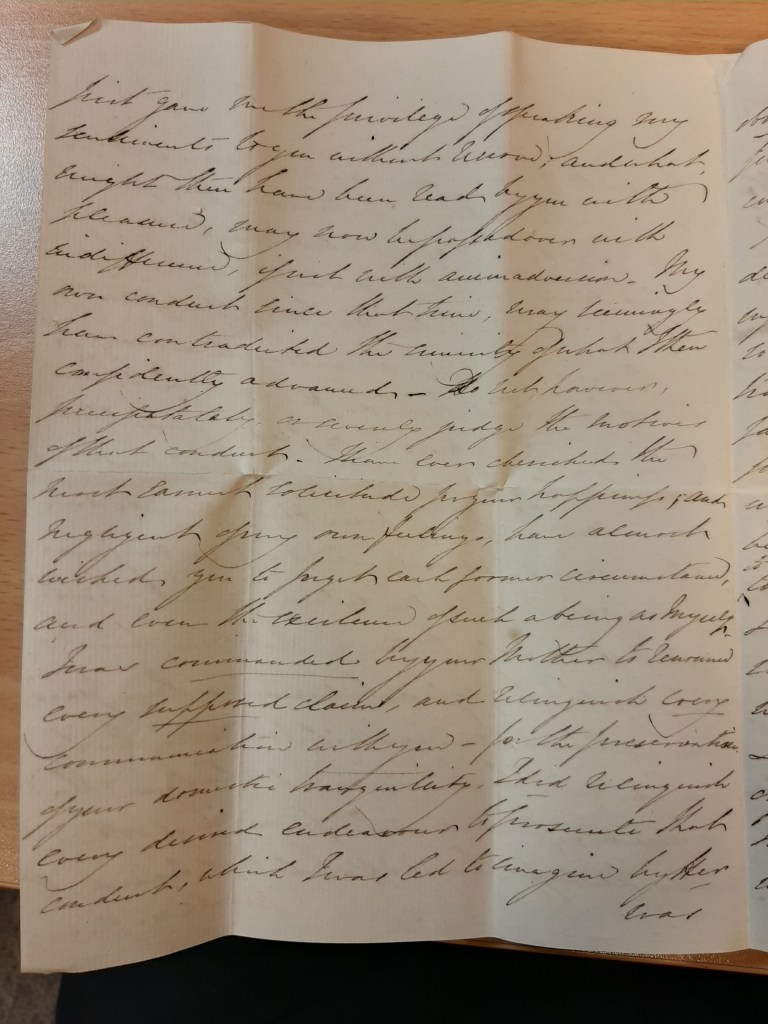 first gave me the privilege of speaking my
sentiments to you without reserve; and what,
might then have been read by you with
pleasure, may now be passed over with
indifference, if not with animadversion. My
own conduct since that time, may seemingly
have contradicted the sincerity of what I then
confidently advanced – Do not however,
precipitately, or severely judge the motives
of that conduct. I have ever cherished the
most earnest solicitude for your happiness; and
negligent of my own feelings, have almost
wished you to forget each former circumstance,
and even the existence of such a being as Myself.
I was commanded by your Mother to renounce
every supposed claim, and relinquish every
communication with you – for the preservation
of your domestic tranquillity. I did relinquish
every desired endeavour to prosecute that
conduct, which I was led to imagine by Her
was